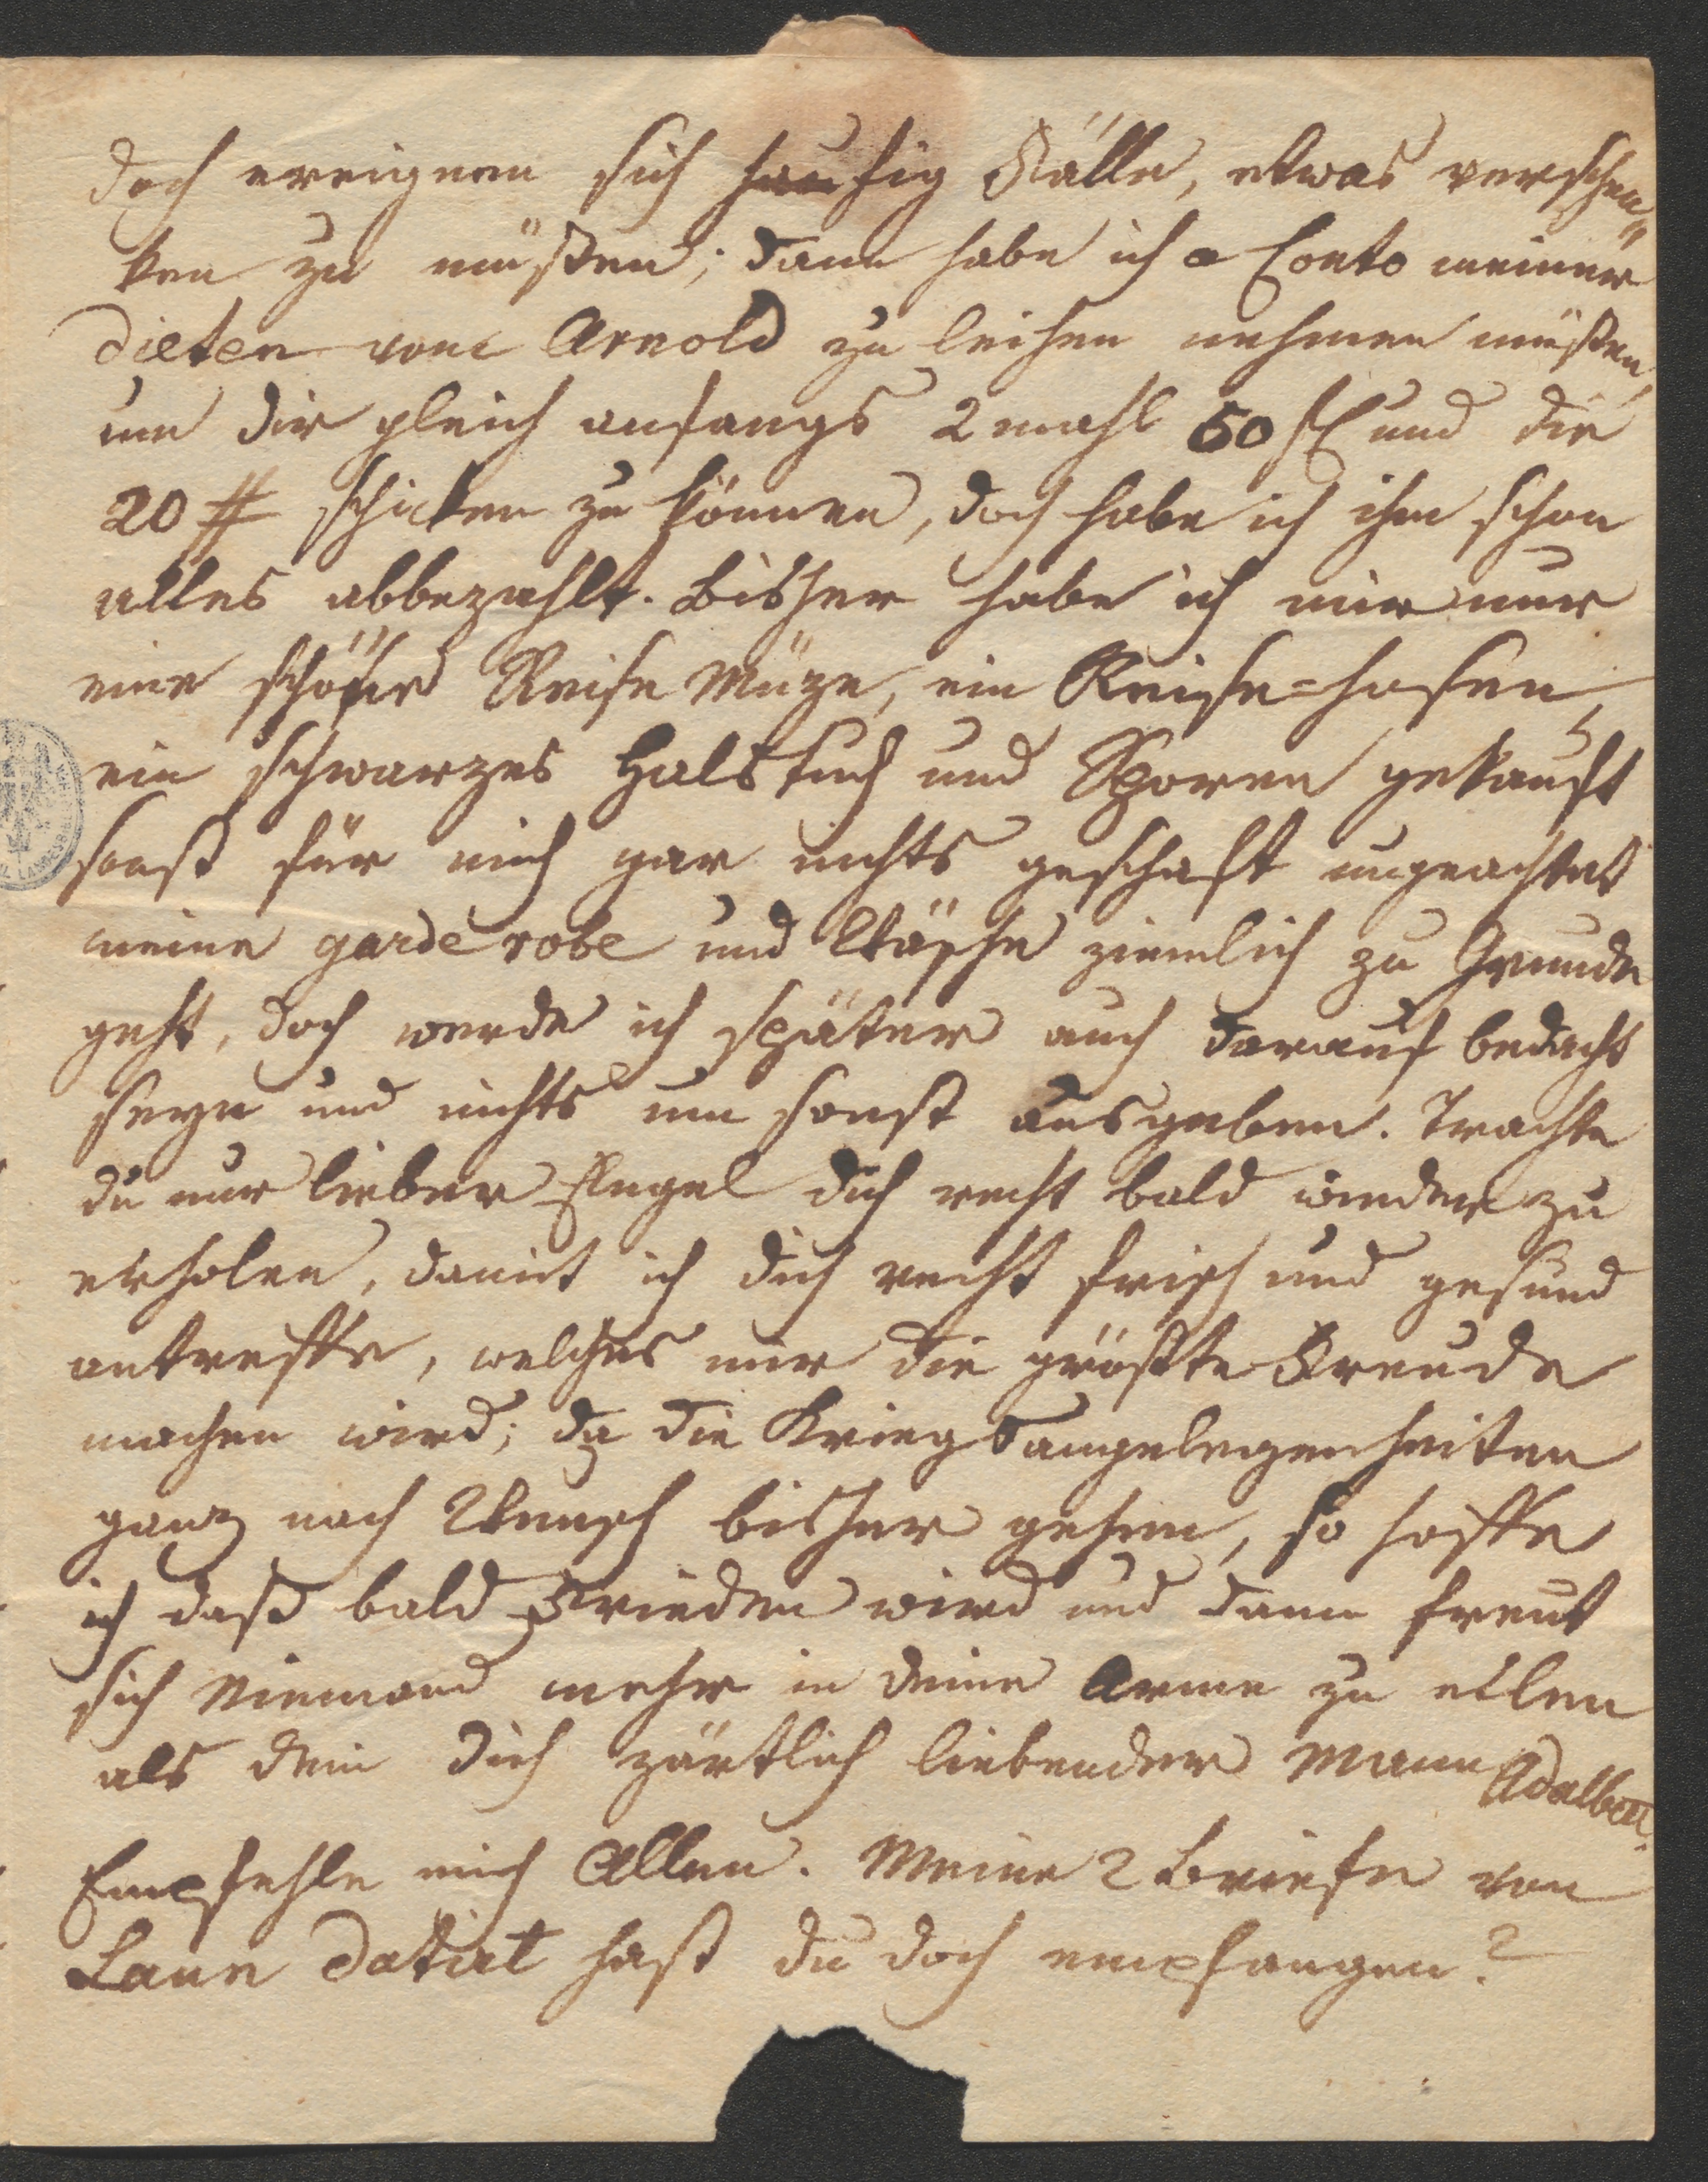 doch ereignen sich häufig Fälle, etwas verschen„
ken zu müßen; dann habe ich a Conto meiner
dieten vom Arnold zu leihen nehmen müßen,
um dir gleich anfangs 2 mahl 50 fl und die
20 # schicken zu können, doch habe ich ihm schon
alles abbezahlt. Bisher habe ich mir nur
eine schöne Reise Müze, ein Reise=hosen,
ein schwarzes Halstuch und Sporen gekauft
sonst für mich gar nichts geschaft ungeachtet
meine garde robe und Wäsche ziemlich zu Grunde
geht, doch werde ich später auch darauf bedacht
seyn und nichts um sonst ausgeben. Trachte
du nur lieber Engel dich recht bald wieder zu
erholen, damit ich dich recht frisch und gesund
antreffe, welches mir die größte Freude
machen wird; da die Kriegsangelegenheiten
ganz nach Wunsch bisher gehen, so hoffe
ich daß bald Frieden wird und dann freut
sich Niemand mehr in deine Arme zu eilen
als dein dich zärtlich liebender Mann Adalbert.
Empfehle mich Allen. Meine 2 Briefe von
Laun datirt hast du doch empfangen?